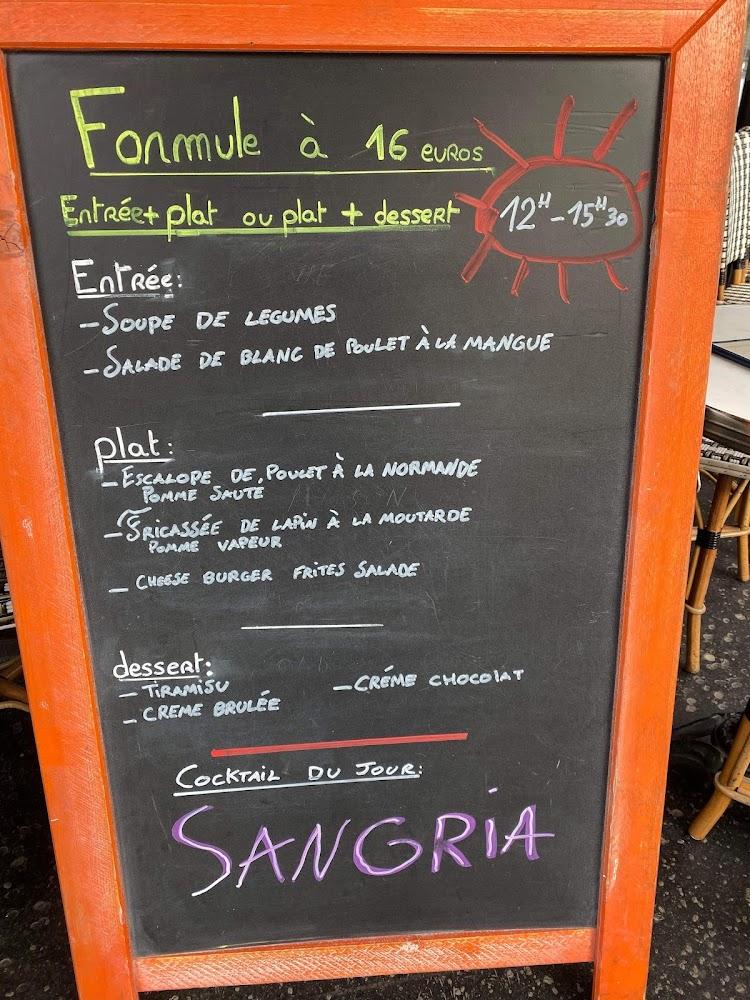 Formule à 16 euros
Entrée + plat ou plat + dessert
12H - 15H30
Entrée:
- SOUPE DE LEGUMES
- SALADE DE BLANC DE POULET À LA MANGUE
plat:
- ESCALOPE DE POULET À LA NORMANDE
POMME SAUTE
- FRICASSÉE DE LAPIN À LA MOUTARDE
POMME VAPEUR
- CHEESE BURGER FRITES SALADE
dessert:
- TIRAMISU - CRÉME CHOCOlAT
- CREME BRULÉE
COCKTAIL DU JOUR:
SANGRiA